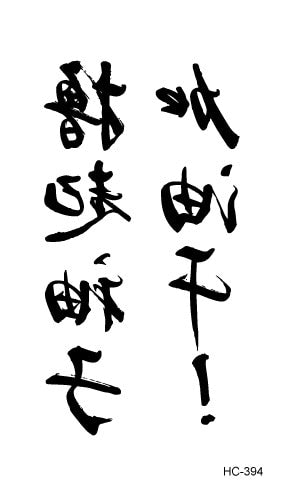 撸起袖子
加油干！
HC-394